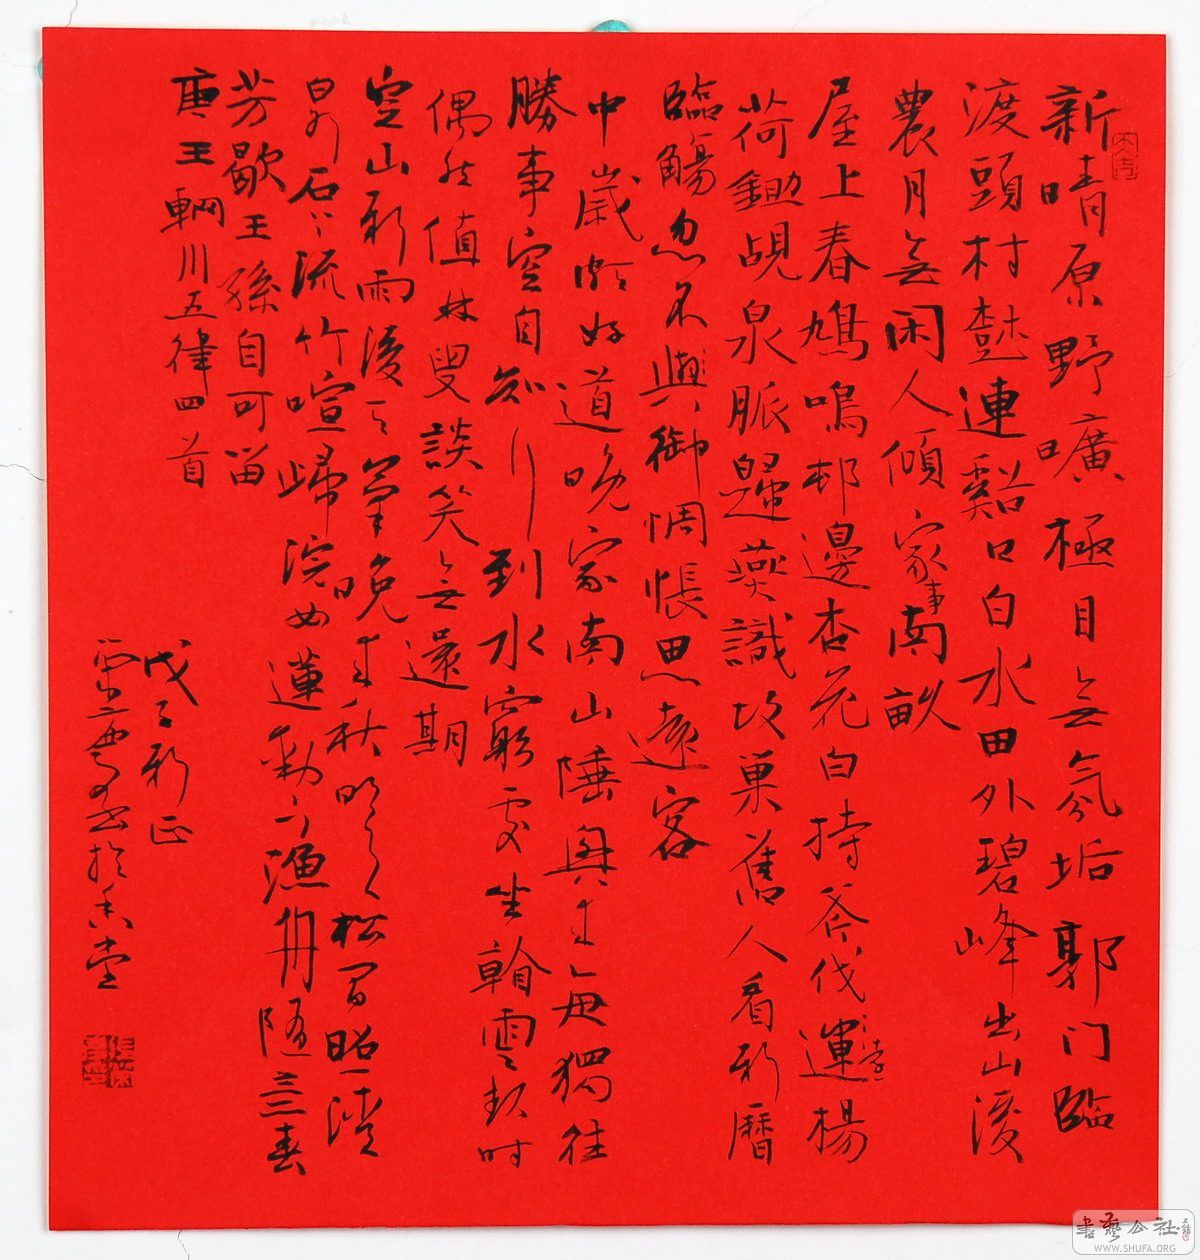 新晴原野曠極目無氛垢郭门臨
渡頭村樹連谿口白水田外碧峰出山後
農月無闲人傾家事南畝
屋上春鳩鳴邨邊杏花白持斧伐運遠楊
荷鋤覘泉脈歸燕識故巢舊人看新曆
臨觴忽不與御惆悵思遠客
中歲頗好道晚家南山陲興来每獨往
勝事空自知行到水窮處坐雲起时
偶然值林叟談笑無還期
空山新雨後天氣晚来秋明月松间照清
泉石上流竹喧歸浣女蓮動下漁舟隨意春
芳歇王孫自可留
唐王輞川五律四首
戊子新正
書於堂
書藝公社
WWW.SHUFA.ORG